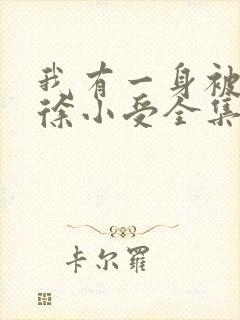 我有一身被
徐小受全集
卡尔罗